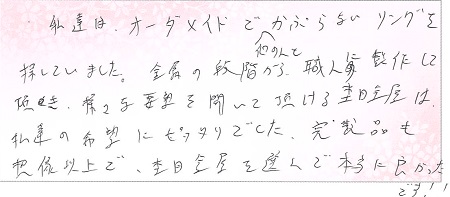 私達は、オーダメイドでかぶらないリングを
探していました。金属の段階から、職人に製作して
頂き、様々な要望を聞いて頂ける杢目金屋は、
私達の希望にピッタリでした。完製品も
想像以上で、杢目金屋を選んで本当に良かった
です!!